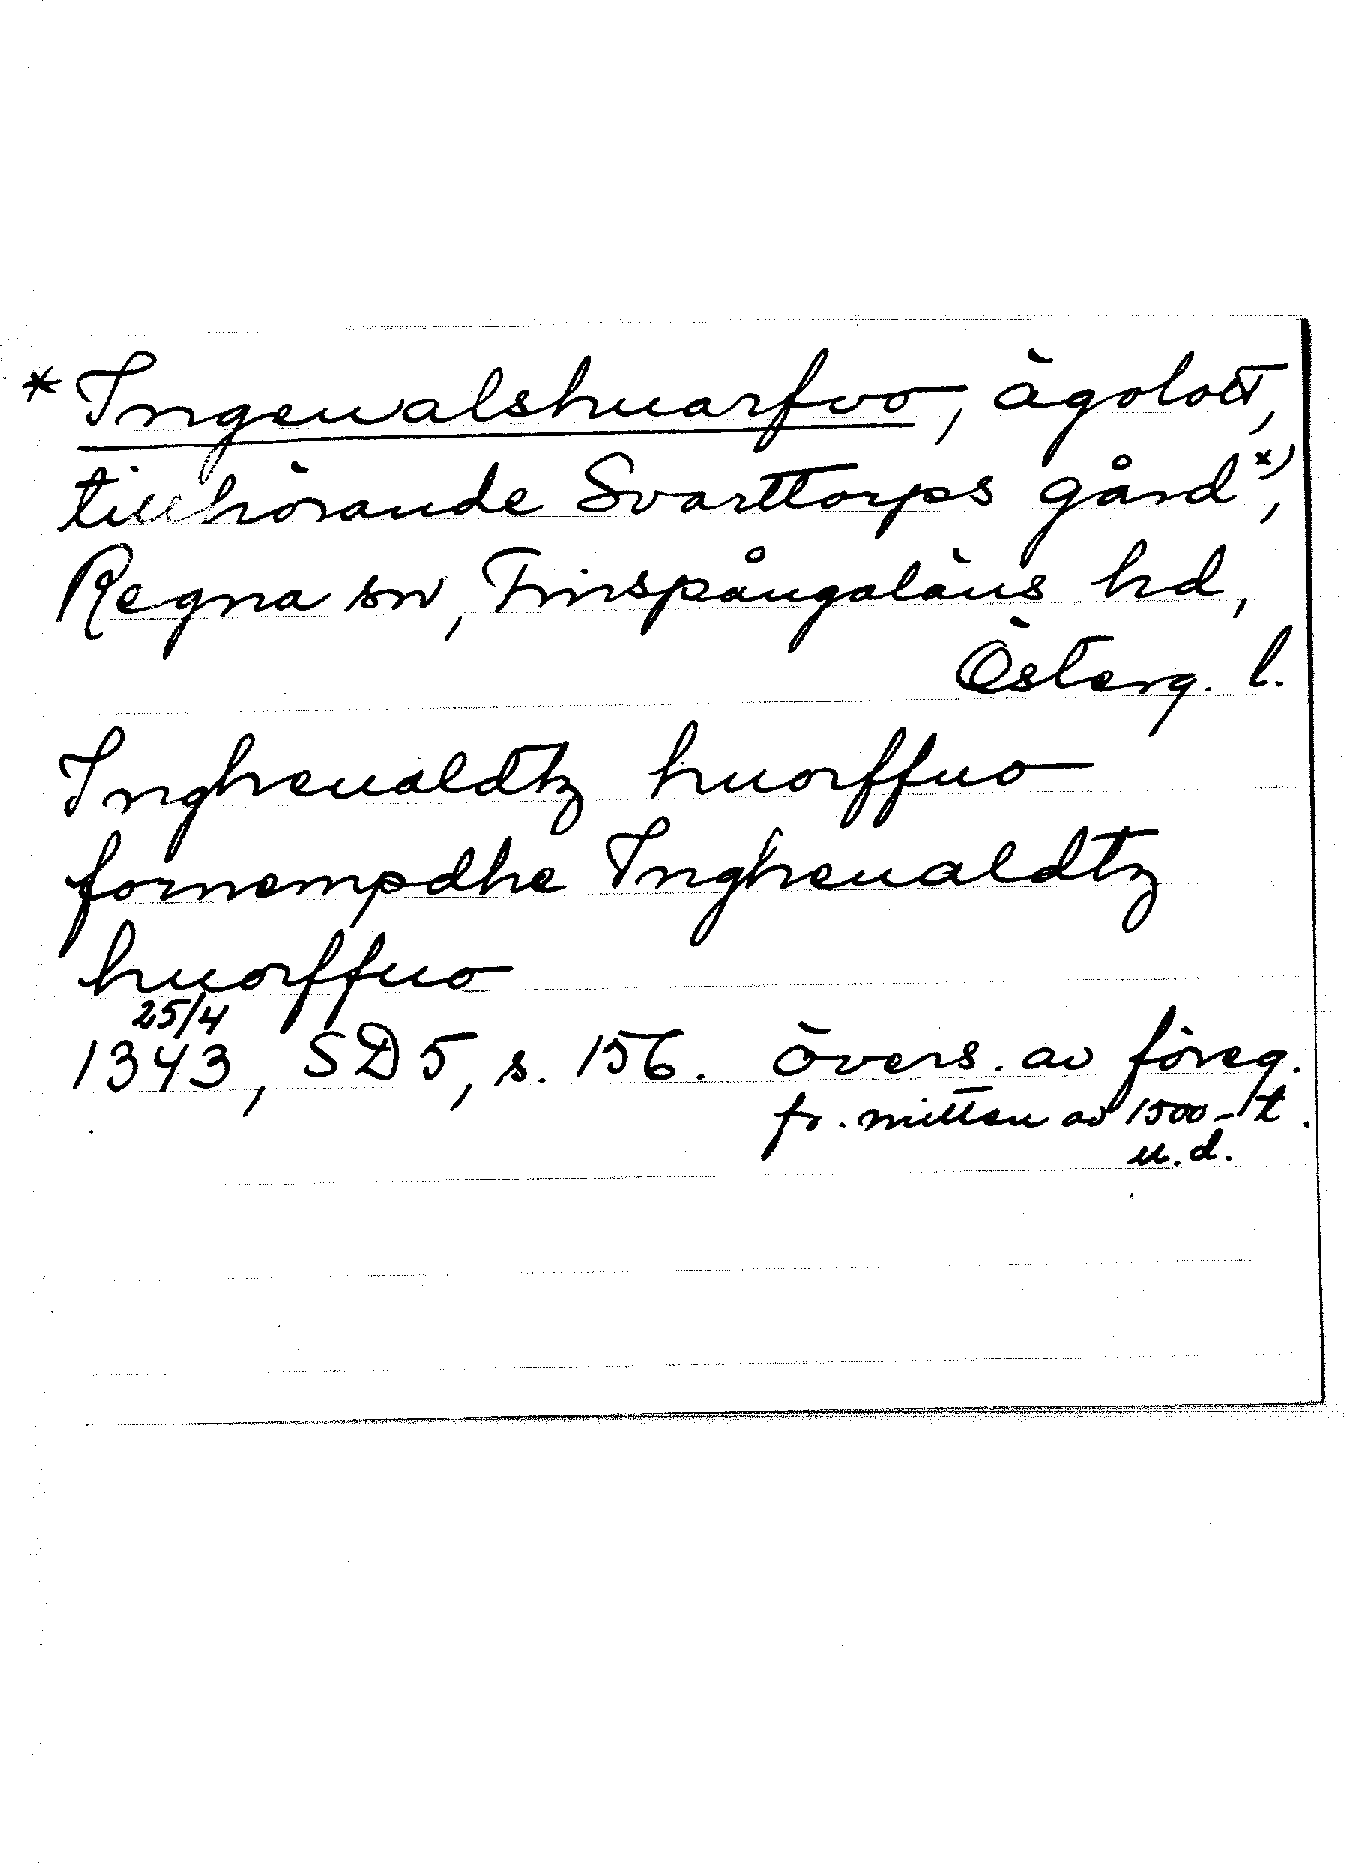 * Ingeualshuarfvo, ägolott,
tillhörande Svarttorps gård*),
Regna sn, Finspångaläns hd,
Österg. l.
Ingheualdtz huorffuo
fornempdhe Ingheualdtz
huorffuo
25/4
1343, SD 5, s. 156. övers. av föreg.
fr. mitten av 1500-t.
u.d.